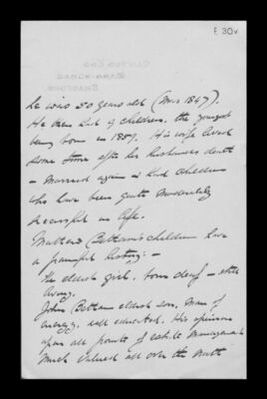 f. 30v
he was 50 years old (Mar 1847).
He then had children, the youngest
being born in 1857. His wife lived
some time after her husbands death
- married again & had children
who have been quite moderately
successful in life.
Matthew Betham's children have
a painful history: -
The eldest girl, born deaf - still
living.
John Betham eldest son, Man of
energy, well educated. His opinion
upon all points of estate management
much valued all over the North